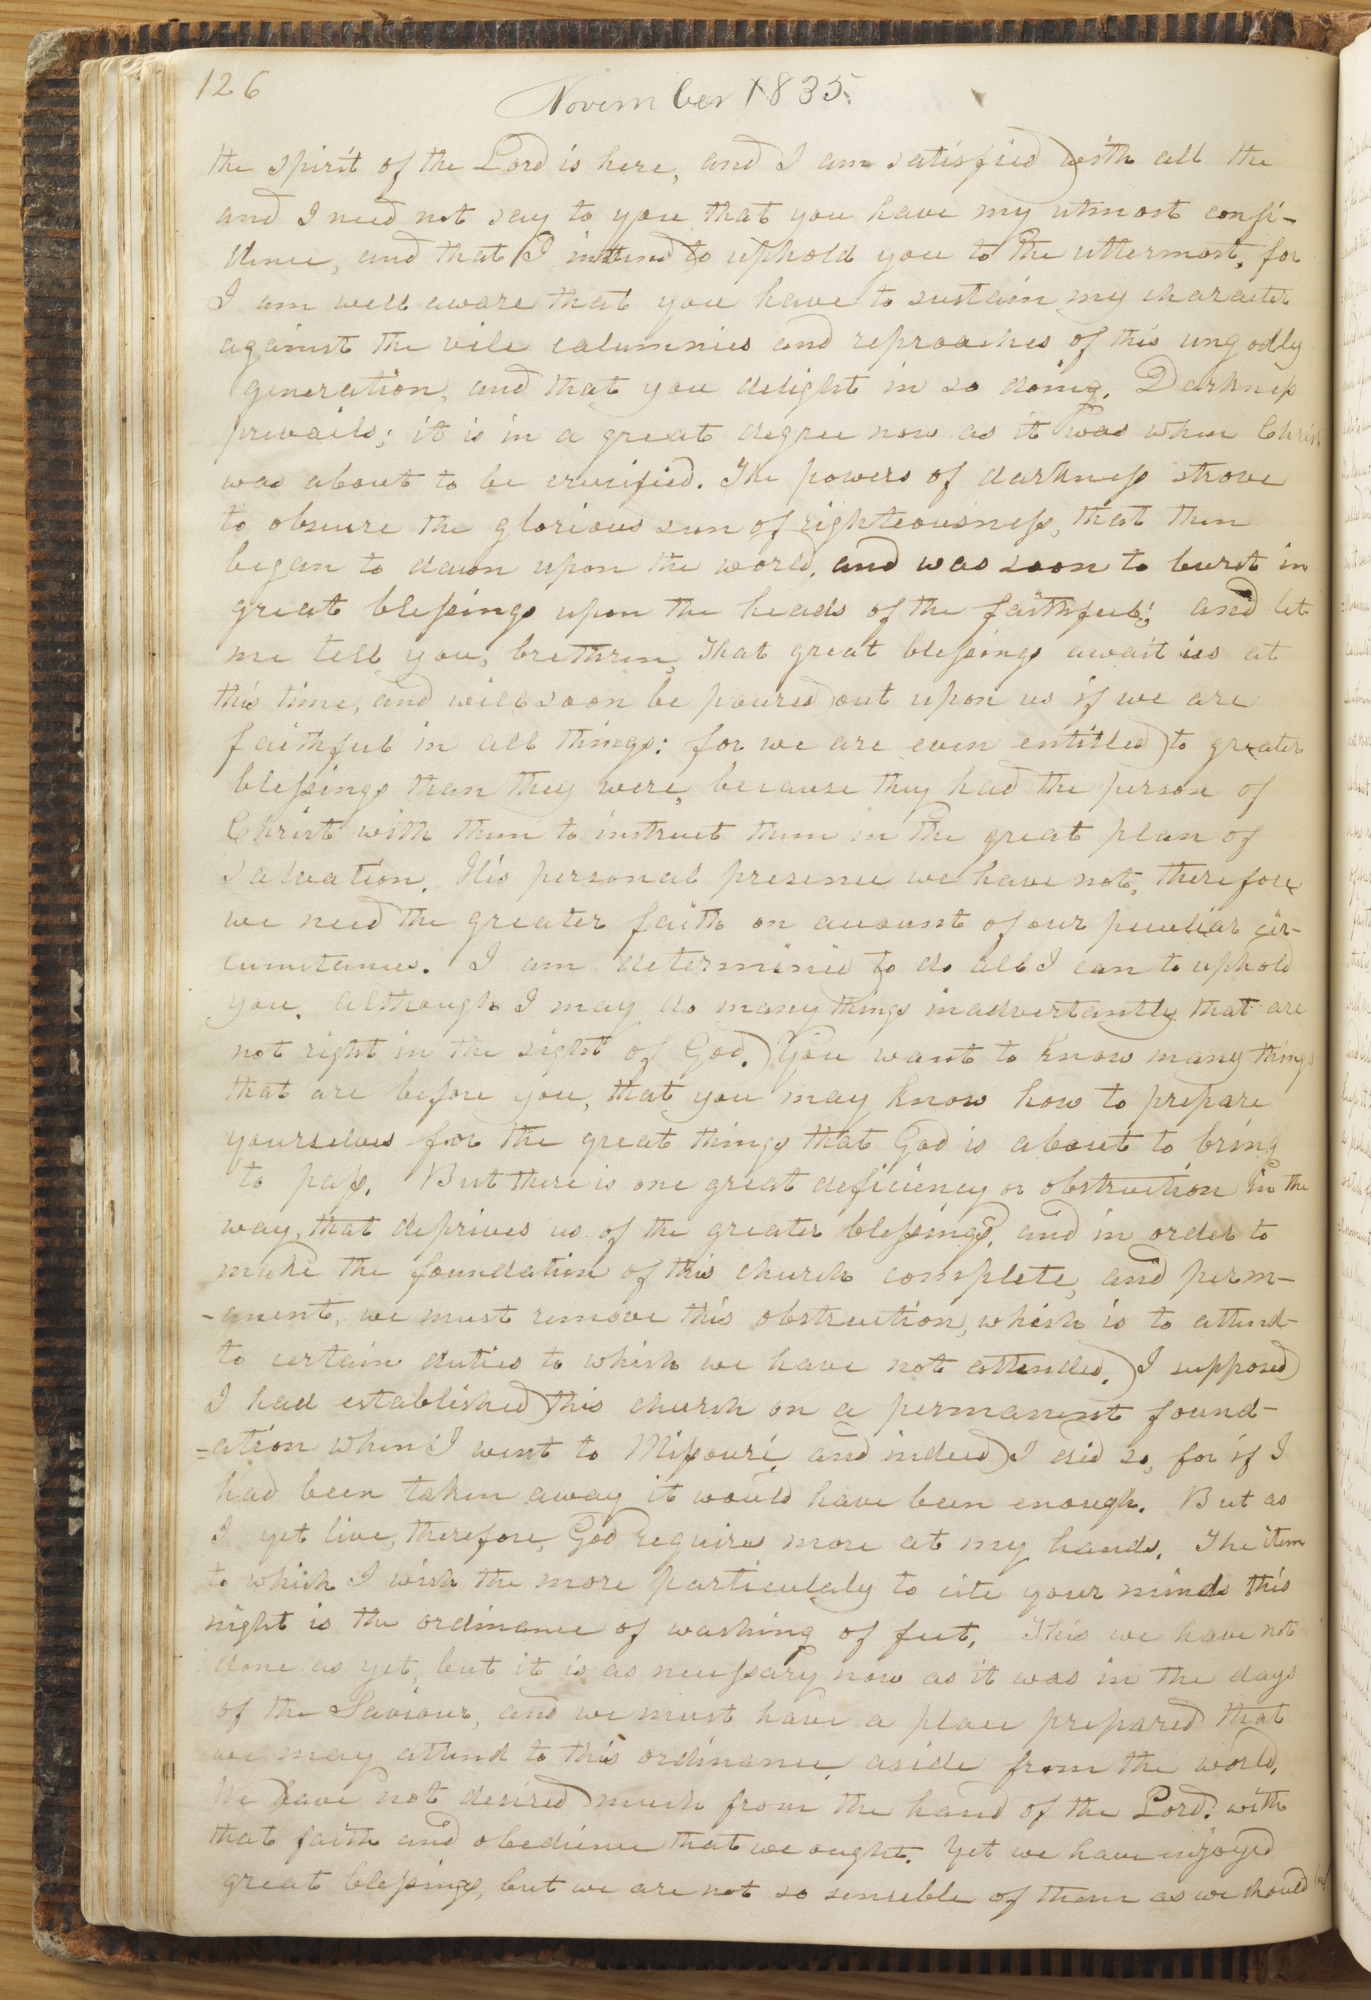 126
November 1835.
the spirit of the Lord is here, and I am satisfied with all the
and I need not say to you that you have my utmost confi-
dence, and that I intend to uphold you to the uttermost, for
I am well aware that you have to sustain my character
against the vile calumnies and reproaches of this ungodly
generation, and that you delight in so doing. Darkness
prevails; it is in a great degree now as it was when Christ
was about to be crucified. The powers of darkness strove
to obscure the glorious sun of righteousness, that then
began to dawn upon the world, and was soon to burst in
great blessings upon the heads of the faithful; and let
me tell you, brethren, that great blessings await us at
this time, and will soon be poured out upon us if we are
faithful in all things: for we are even entitled to greater
blessings than they were, because they had the person of
Christ with them to instruct them in the great plan of
salvation. His personal presence we have not, therefore
we need the greater faith on account of our peculiar cir-
cumstances. I am determinied to do all I can to uphold
you, although I may do many things inadvertantly that are
not right in the sight of God. You want to know many things
that are before you, that you may know how to prepare
yourselves for the great things that God is about to bring
to pass. But there is one great deficiency or obstruction in the
way, that deprives us of the greater blessings, and in order to
make the foundation of this church complete, and perm-
-anent, we must remove this obstruction, which is to attend-
to certain duties to which we have not attended. I supposed
I had established this church on a permanent found-
=ation when I went to Missouri, and indeed I did so, for if I
had been taken away it would have been enough. But as
I yet live, therefore, God requires more at my hands. The item
to which I wish the more particulaly to cite your minds this
night is the ordinance of washing of feet, This we have not
done as yet, but it is as necessary now as it was in the days
of the Saviour, and we must have a place prepared that
we may attend to this ordinance, aside from the world,
We have not desired much from the hand of the Lord, with
that faith and obedience that we ought. Yet we have enjoyed
great blessings, but we are not so sensible of them as we should